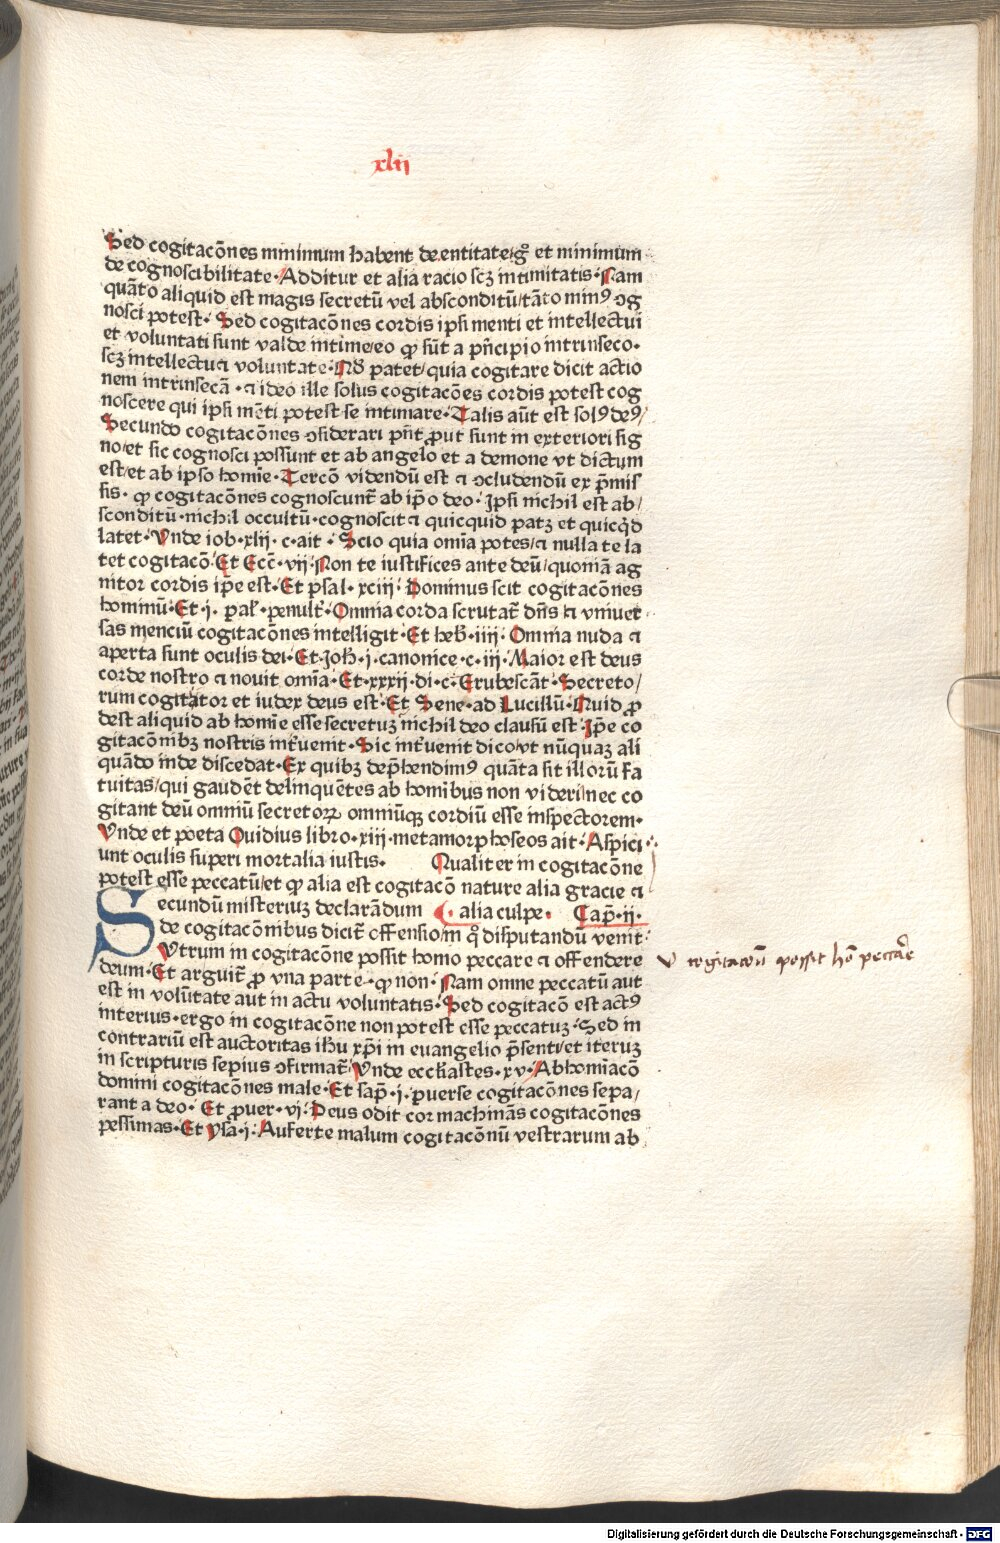 xlii
Sed cogitacōnes minimum habent de entitate/gͦ et minimum
de cognoscibilitate·Additur et alia racio scꝫ intimitatis·Nam
quāto aliquid est magis secretū vel absconditū/tāto minꝰ ꝯg
nosci potest· Sed cogitacōnes cordis ipsi menti et intellectui
et voluntati sunt valde intime/eo ꝙ sūt a pn̄cipio intrinseco·
scꝫ intellectu ⁊ voluntate·Qd̄ patet/quia cogitare dicit actio
nem intrinsecā·⁊ ideo ille solus cogitacōes cordis potest cog
noscere qui ipsi mēti potest se intimare·Talis aūt est solꝰ deꝰ/
Secundo cogitacōnes ꝯsiderari pn̄t ꝓut sunt in exteriori sig
no/et sic cognosci possunt et ab angelo et a demone vt dictum
est/et ab ipso homīe·Tercō videndū est ⁊ ꝯcludendū ex p̄mis
sis·ꝙ cogitacōnes cognoscunt̄ ab ip̄o deo·Ipsi nichil est ab/
sconditū·nichil occultū·cognoscit ⁊ quicquid patꝫ et quicq̇d
latet·Vnde iob·xlii·c·ait·Scio quia om̄ia potes/⁊ nulla te la
tet cogitacō·Et Ecc̄·vii·Non te iustifices ante deū/quoniā ag
nitor cordis ip̄e est·Et psal·xciii·Dominus scit cogitacōnes
hominū·Et·i·pal̄·penult̄·Omnia corda scrutat̄ dn̄s ⁊ vniuer
sas menciū cogitacōnes intelligit·Et heb̄·iiii·Omnia nuda ⁊
aperta sunt oculis dei·Et Joh̄·i·canonice·c·iii·Maior est deus
corde nostro ⁊ nouit om̄ia·Et·xxxii·di·c·Erubescāt·Secreto/
rum cogitator et iudex deus est·Et Sene·ad Lucillū·Quid ꝓ
dest aliquid ab homīe esse secretuꝫ nichil deo clausū est·Ip̄e co
gitacōnibꝫ nostris int̄uenit·Sic int̄uenit dico/vt nūquaꝫ ali
quādo inde discedat·Ex quibꝫ dep̄hendimꝰ quāta sit illorū fa
tuitas/qui gaudēt delinquētes ab homībus non videri/nec co
gitant deū omniū secretoꝝ omniūqꝫ cordiū esse inspectorem·
Vnde et poeta Ouidius libro·xiii·metamorphoseos ait·Aspici
unt oculis superi mortalia iustis· Qualiter in cogitacōne
potest esse peccatū/et ꝙ alia est cogitacō nature alia gracie ⁊
Secundū misteriuꝫ declarādum alia culpe· Cap̄·ii·
de cogitacōnibus dicit̄ offensio/in qͦ disputandū venit
Vtrum in cogitacōne possit homo peccare ⁊ offendere
deum·Et arguit̄ ꝓ vna parte·ꝙ non·Nam omne peccatū aut
est in volūtate aut in actu voluntatis·Sed cogitacō est actꝰ
interius·ergo in cogitacōne non potest esse peccatuꝫ·Sed in
contrariū est auctoritas ih̄u xp̄i in euangelio p̄senti/et iteruꝫ
in scripturis sepius ꝯfirmat̄/Vnde eccl̄iastes·xv·Abhomiacō
domini cogitacōnes male·Et sap̄·i·ꝑuerse cogitacōnes sepa/
rant a deo·Et ꝓuer·vi·Deus odit cor machinās cogitacōnes
pessimas·Et ysa·i·Auferte malum cogitacōnū vestrarum ab
V cogitacoū possit hō peccāre
Digitalisierung gefördert durch die Deutsche Forschungsgemeinschaft - DFG